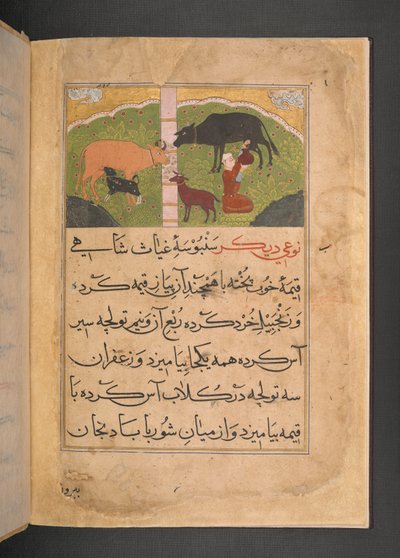 نوعی دیگر سنبوسهٔ غیاث شاهی
قیمهٔ خوب پخته با همچند آن پیاز قیمه کرده
و زنجبیل خرد کرده ربع آن و نیم تولچه سیر
آس کرده همه یکجا بیامیزد و زعفران
سه تولچه در کلاب آس کرده با
قیمه بیامیزد و از میان شوربا بادنجان
بیرون